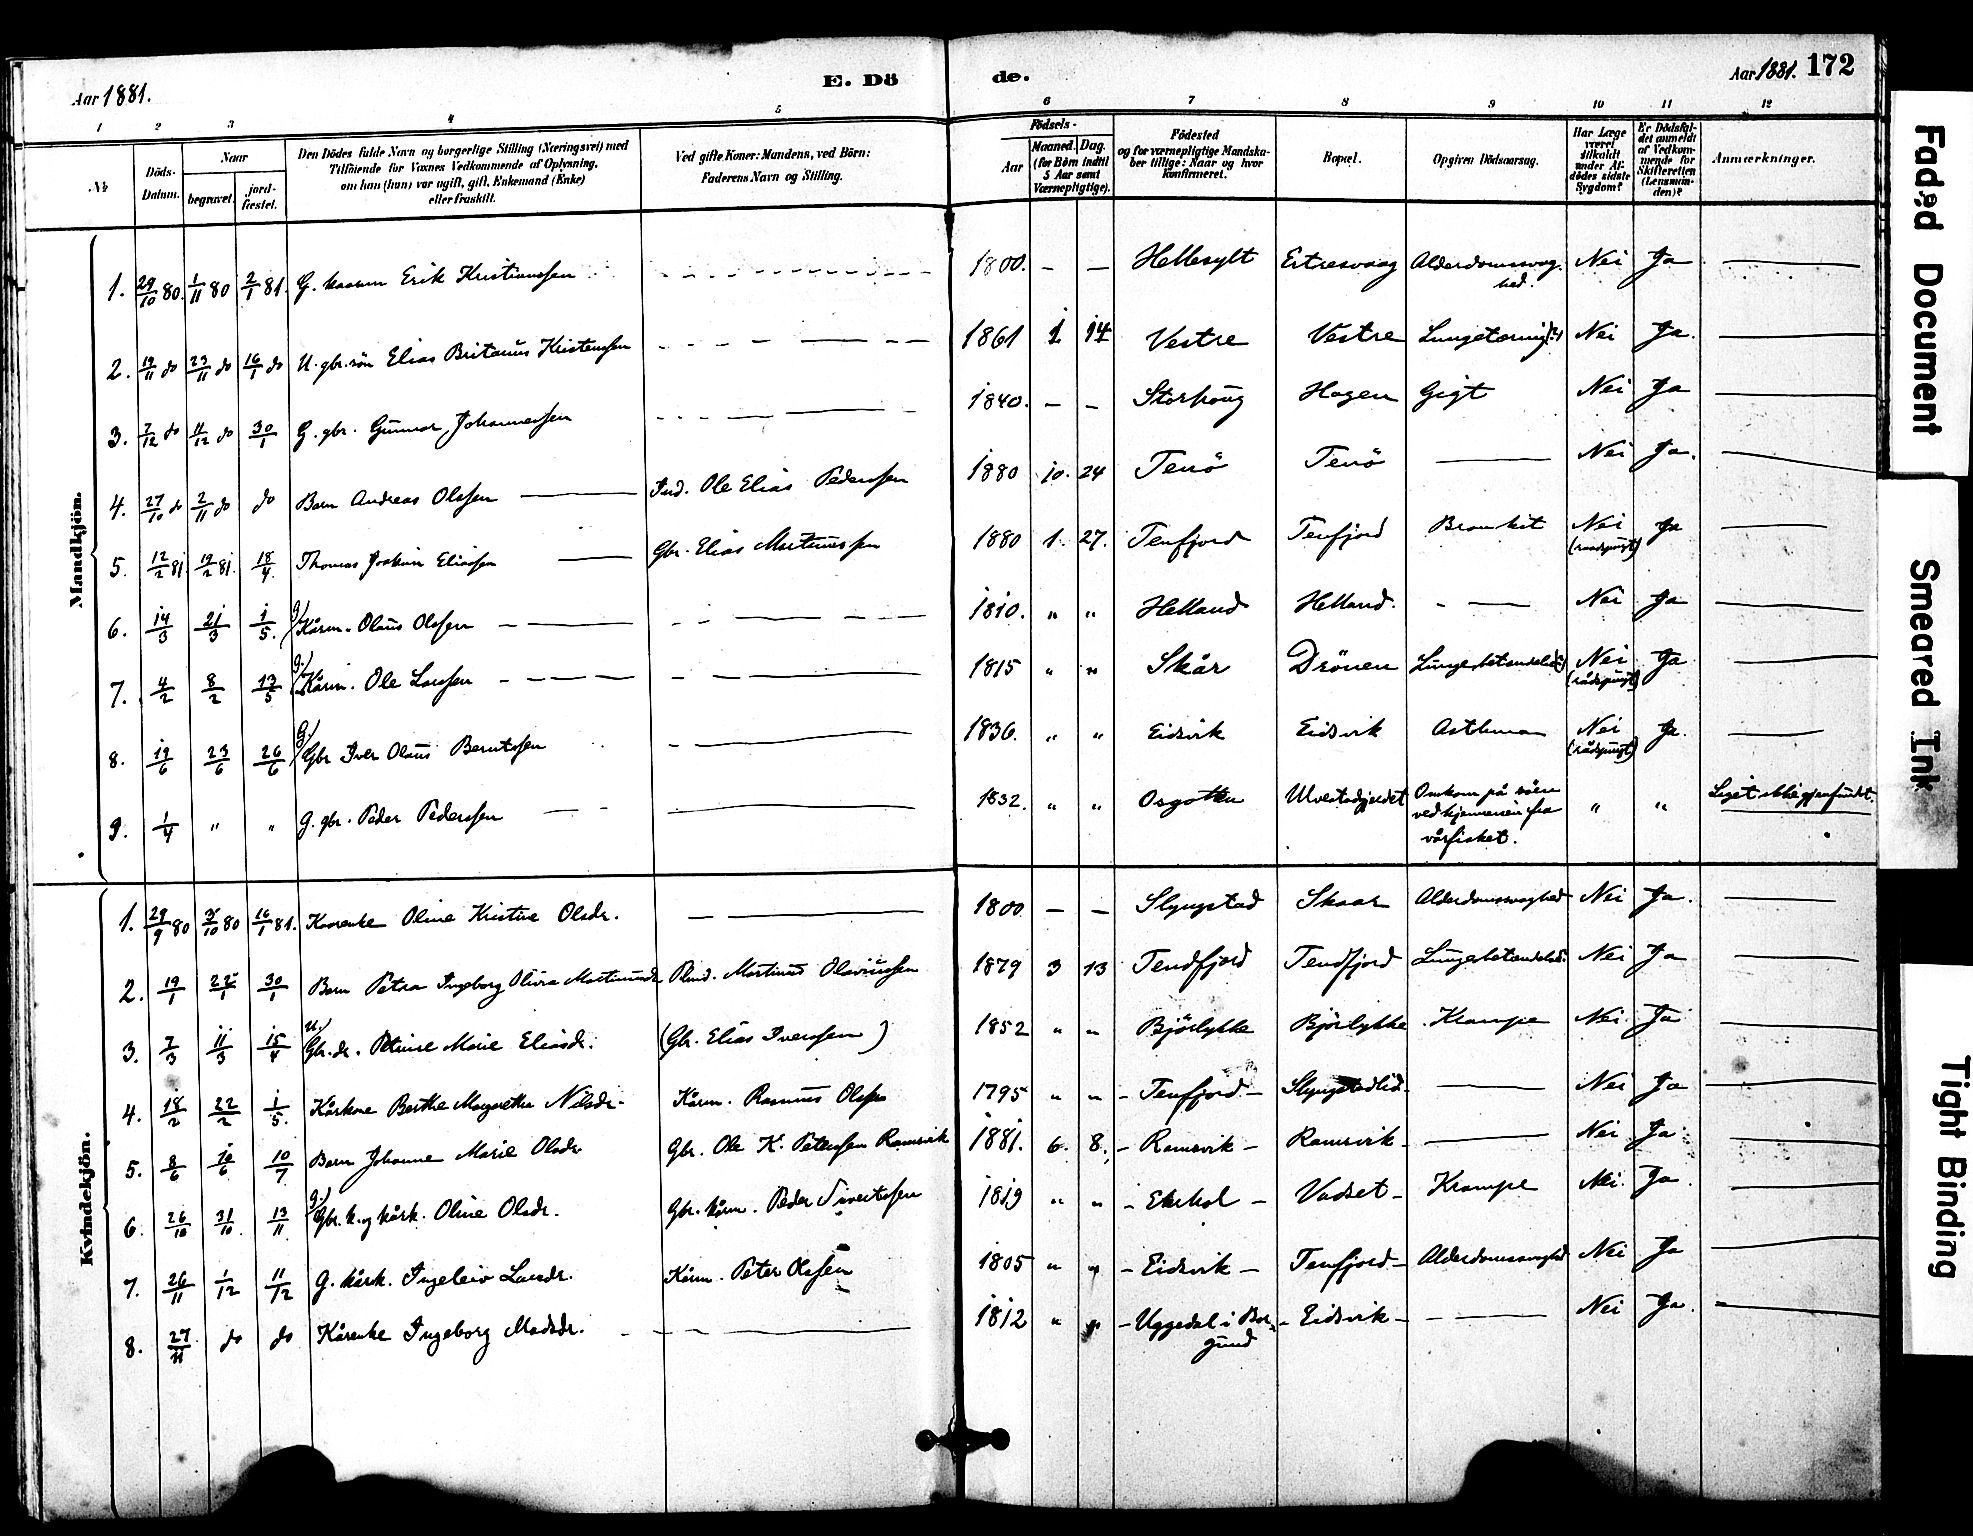 Aar 1881. E. Dö de. Aar 1881. 172
1 2 3 4 5 6 7 8 9 10 11 12
№ Döds-Datum. Naar begravet. jordfæstet. Den Dödes fulde Navn og borgerlige Stilling (Næringsvei) med Tilföiende for Voxnes Vedkommende af Oplysning, om han (hun) var ugift, gift, Enkemand (Enke) eller fraskilt. Ved gifte Koner: Mandens, ved Börn: Faderens Navn og Stilling. Födsels- Aar Maaned. Dag. (for Börn indtil 5 Aar samt Værnepligtige). Födested og for værnepligtige Mandskaber tillige: Naar og hvor konfirmeret. Bopæl. Opgiven Dödsaarsag. Har Læge været tilkaldt under Afdödes sidste Sygdom? Er Dödsfaldet anmeldt af Vedkommende for Skifteretten (Lensmanden)? Anmærkninger.
Mandkjön.
1. 29/10 80. 1/11 80 2/1 81. G. kaarm Erik Kristianssen 1800. — — Hellesylt Ertresvaag Alderdomssvaghed. Nei Ja
2. 19/11 do 23/11 do 16/1 do U. gbr.sön Elias Britanus Kristenssen 1861 1 14 Vestre Vestre Lungetæring(?) Nei Ja.
3. 7/12 do 11/12 do 30/1 G. gbr. Gunnar Johannessen 1840. — — Storhoug Hagen Gigt Nei Ja
4. 27/10 do 2/11 do do Barn Andreas Olssen Ind. Ole Elias Pederssen 1880 10. 24 Tenö Tenö — Nei Ja.
5. 12/2 81 19/2 81. 18/4. Thomas Joakim Eliassen Gbr. Elias Martinussen 1880 1. 27. Tenfjord Tenfjord Bronkit Nei (raadspurgt) Ja
6. 14/3 21/3 1/5. g.) Kårm. Olaus Olssen 1810. " " Helland Helland. — Nei Ja
7. 4/2 8/2 13/5 g.) Kårm. Ole Larssen 1815 " " Skår Drönen Lungebetændelse(?) Nei (rådspurgt) Ja
8. 19/6 23/6 26/6 G.) Gbr Iver Olaus Berntssen 1836. " " Eidsvik Eidsvik Asthma Nei (rådspurgt) Ja.
9. 1/4 " " G. gbr. Peder Pederssen 1832. " " Ulvestadgjerdet Omkom på söen ved hjemreisen fra vårfisket. " " Liget ikke gjenfundet.
Kvindekjön.
1. 29/9 80 3/10 80 16/1 81. Kaarenke Oline Kristine Olsdr. 1800 — — Slyngstad Skaar Alderdomssvaghed Nei Ja.
2. 19/1 30/1 Barn Petra Ingeborg Olivia Martinusdr Martinus Olavussen 1879 3 13 Tendfjord Tendfjord Lungebetændelse Nei Ja
3. 7/3 11/3 15/4 U.) Gbr.dr. Petrine Marie Eliasdr. (Gbr. Elias Iverssen) 1852 " " Björlykke Björlykke Krampe Nei Ja
4. 18/2 22/2 1/5. Kårkone Berthe Margrethe Nilsdr. Kårm. Rasmus Olssen 1795 " " Tenfjord — Slyngstadlid. — Nei Ja
5. 8/6 10/6 10/7 Barn Johanne Marie Olsdr Gbr. Ole K. Peterssen Ramsvik 1881. 6. 8. Ramsvik — Ramsvik — Nei Ja
6. 26/10 31/10. 13/11 g.) Gbr.k. og kårk. Oline Olsdr. Gbr. kårm. Peder Sivertssen 1819 " " Vadset — Krampe Nei. Ja.
7. 26/11 1/12 11/12 G. kårk. Ingeleiv Larsdr. Kårm. Peter Olssen 1805 " " Eidsvik — Tenfjord — Alderdomssvaghed Nei Ja
8. 27/11 do do Kårenke Ingeborg Madsdr. 1812 " " Uggedal i Borgund Eidsvik — Nei Ja.
Faded Document
Smeared Ink
Tight Binding